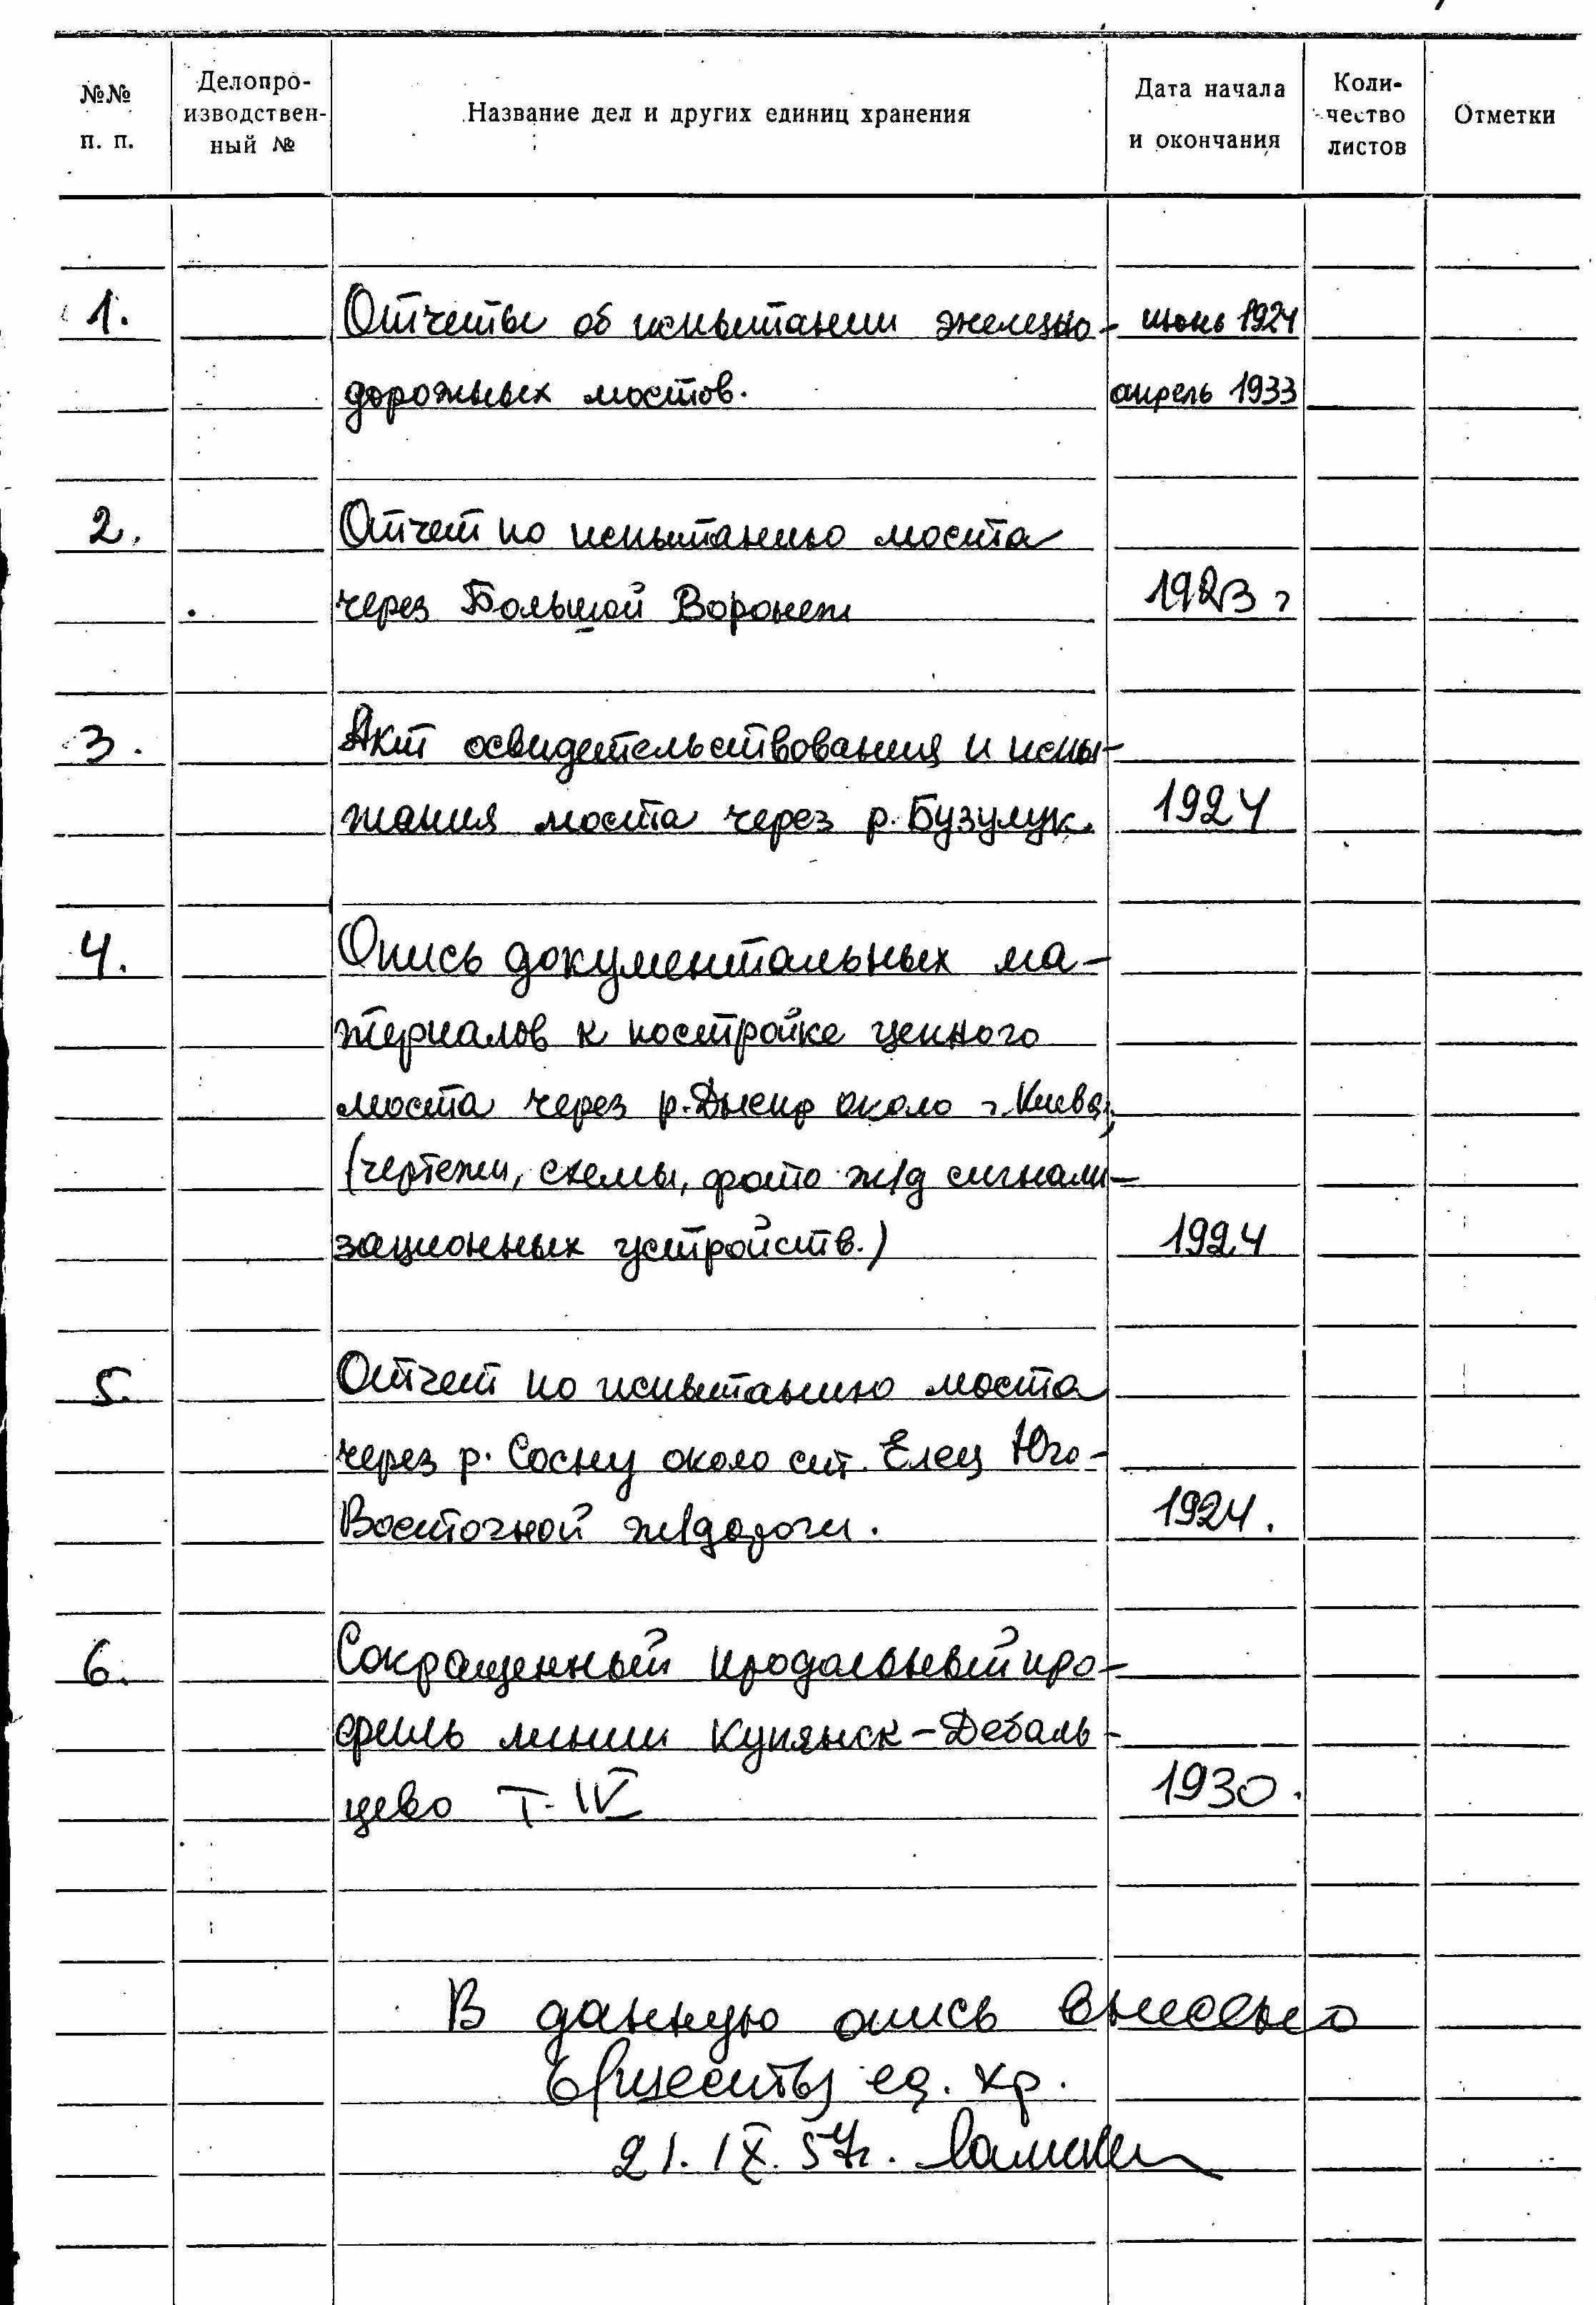 №№ п. п. Делопро- изводствен- ный № Название дел и других единиц хранения Дата начала и окончания Коли- чество листов Отметки
1. Отчеты об испытании железно- июнь 1924
дорожных мостов. апрель 1933
2. Отчет по испытанию моста
через Большой Воронеж 1923 г
3. Акт освидетельствования и испы-
тания моста через р. Бузулук. 1924
4. Опись документальных ма-
териалов к постройке цепного
моста через р. Днепр около г. Киева,
(чертежи, схемы, фото ж/д сигнали-
зационных устройств.) 1924
5. Отчет по испытанию моста
через р. Сосну около ст. Елец Юго-
Восточной ж/дороги. 1924.
6. Сокращенный продольный про-
филь линии Купянск-Дебаль-
цево Т. IV 1930.
В данную опись внесено
6 (шесть) ед. хр.
21. IX. 57г.